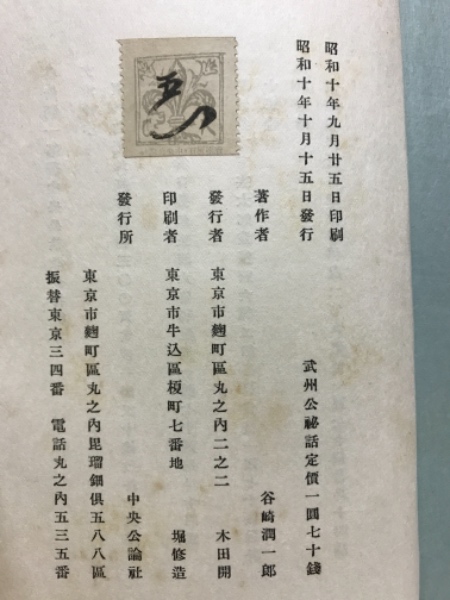 昭和十年九月廿五日印刷
昭和十年十月十五日發行
武州公祕話定價一圓七十錢
著作者 谷崎潤一郎
發行者 東京市麴町區丸之內二之二 木田開
印刷者 東京市牛込區榎町七番地 堀修造
發行所 中央公論社
東京市麴町區丸之內毘瑠鈿俱五八八區
振替東京三四番 電話丸之內五三五番